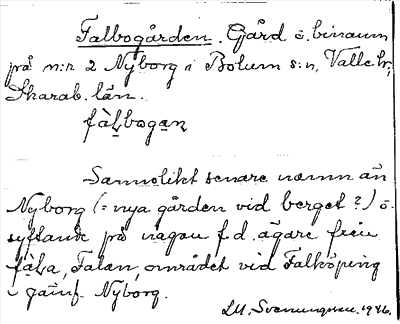 Falbogården. Gård o. binamn
på n:r 2 Nyborg i Bolum s:n, Valle hr,
Skarab. län.
fàlbogan
Sannolikt senare namn än
Nyborg (= nya gården vid berget?) o.
syftande på någon f.d. ägare från
fàla, Falan, området vid Falköping
i jämf. Nyborg.
LM. Svenungsson. 1946.